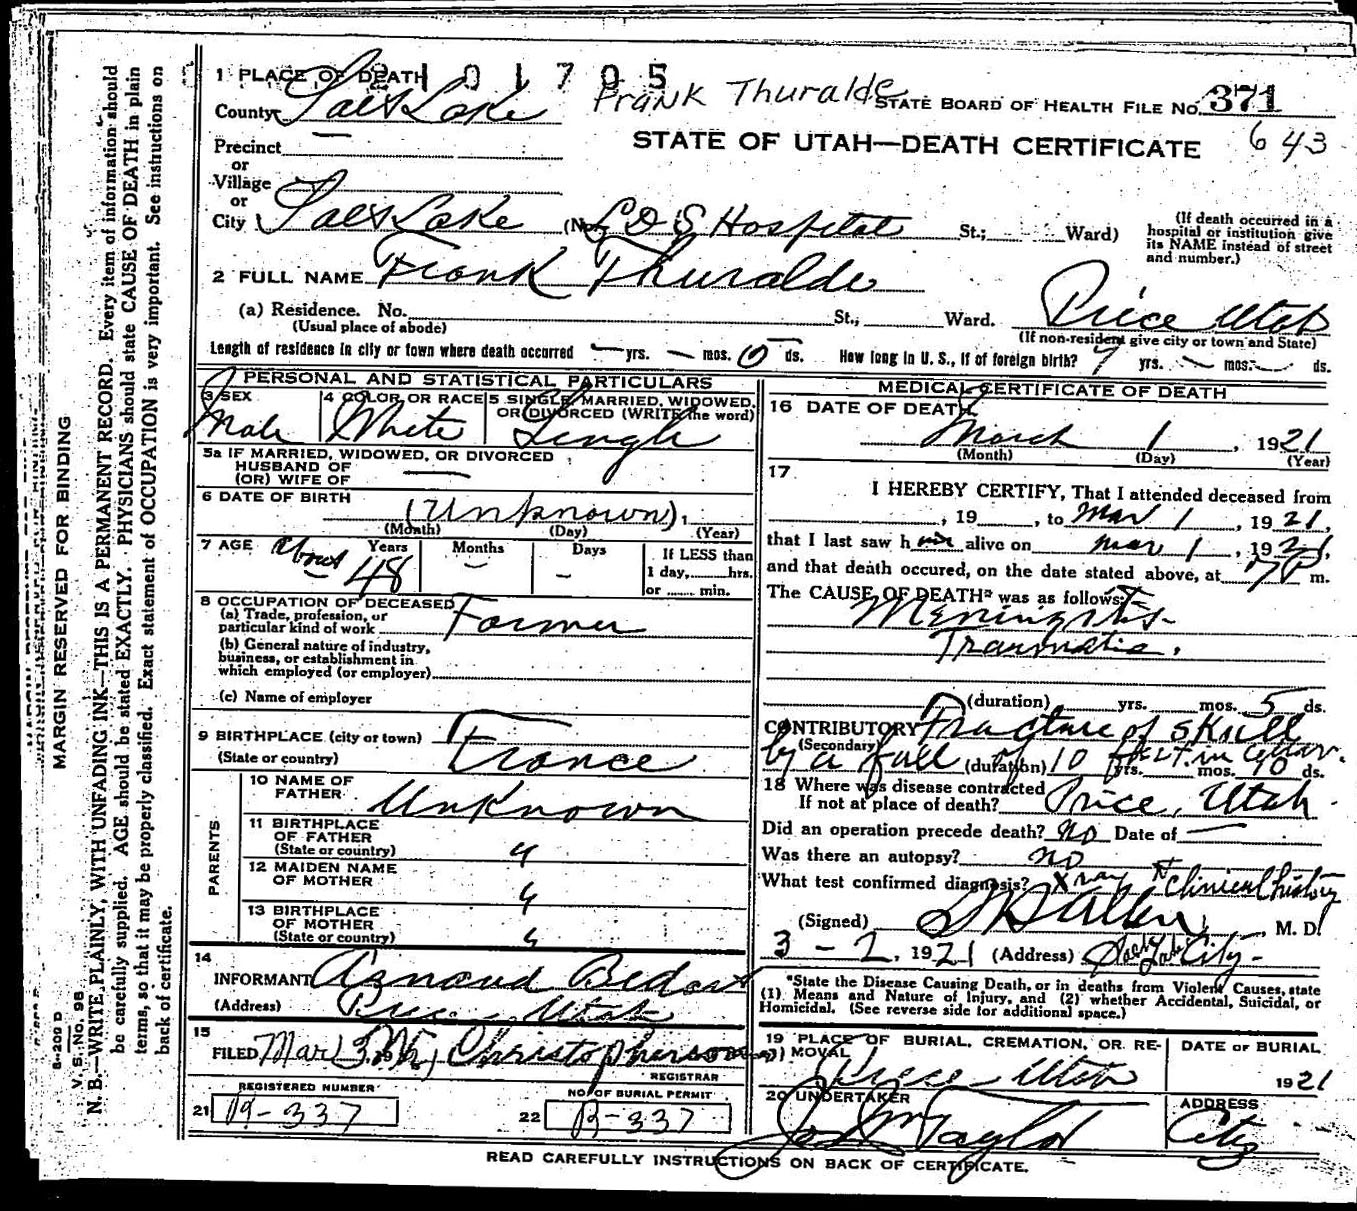 2101705
Frank Thuralde
STATE BOARD OF HEALTH FILE NO. 371
643
STATE OF UTAH—DEATH CERTIFICATE
1 PLACE OF DEATH
County Salt Lake
Precinct
or
Village
or
City Salt Lake (No. L D S Hospital St.; Ward)
(If death occurred in a
hospital or institution give
its NAME instead of street
and number.)
2 FULL NAME Frank Thuralde
(a) Residence. No. St., Ward. Price Utah
(Usual place of abode) (If non-resident give city or town and State)
Length of residence in city or town where death occurred — yrs. — mos. 5 ds. How long in U. S., if of foreign birth? yrs. — mos. — ds.
PERSONAL AND STATISTICAL PARTICULARS
3 SEX
Male
4 COLOR OR RACE
White
5 SINGLE, MARRIED, WIDOWED,
OR DIVORCED (WRITE the word)
Single
5a IF MARRIED, WIDOWED, OR DIVORCED
HUSBAND OF
(OR) WIFE OF —
6 DATE OF BIRTH
(Unknown)
(Month) (Day) (Year)
7 AGE about Years Months Days If LESS than
48 — — 1 day, hrs.
or min.
8 OCCUPATION OF DECEASED
(a) Trade, profession, or
particular kind of work Farmer
(b) General nature of industry,
business, or establishment in
which employed (or employer)
(c) Name of employer
9 BIRTHPLACE (city or town)
(State or country) France
PARENTS
10 NAME OF
FATHER Unknown
11 BIRTHPLACE
OF FATHER
(State or country) "
12 MAIDEN NAME
OF MOTHER "
13 BIRTHPLACE
OF MOTHER
(State or country) "
14
INFORMANT
(Address) Price Utah
15
FILED Mar 3 Christopherson
REGISTRAR
REGISTERED NUMBER
21 337
NO. OF BURIAL PERMIT
22 B-337
MEDICAL CERTIFICATE OF DEATH
16 DATE OF DEATH
March 1, 1921
(Month) (Day) (Year)
17
I HEREBY CERTIFY, That I attended deceased from
, 19 , to Mar 1, 1921,
that I last saw him alive on Mar 1, 1921,
and that death occured, on the date stated above, at 7 P m.
The CAUSE OF DEATH* was as follows:
Meningitis
Traumatic.
(duration) yrs. mos. 5 ds.
CONTRIBUTORY Fracture of skull
(Secondary) by a fall of 10 feet in cellar.
(duration) yrs. mos. 10 ds.
18 Where was disease contracted
If not at place of death? Price, Utah.
Did an operation precede death? no Date of —
Was there an autopsy? no
What test confirmed diagnosis? X ray & Clinical history
(Signed) M. D.
3-2, 1921 (Address) Salt Lake City-
*State the Disease Causing Death, or in deaths from Violent Causes, state
(1) Means and Nature of Injury, and (2) whether Accidental, Suicidal, or
Homicidal. (See reverse side for additional space.)
19 PLACE OF BURIAL, CREMATION, OR RE-
MOVAL Price Utah
DATE OF BURIAL
1921
20 UNDERTAKER
Taylor
ADDRESS
City
READ CAREFULLY INSTRUCTIONS ON BACK OF CERTIFICATE.
MARGIN RESERVED FOR BINDING
V. S. NO. 98
N. B.—WRITE PLAINLY, WITH UNFADING INK—THIS IS A PERMANENT RECORD. Every item of information should
be carefully supplied. AGE should be stated EXACTLY. PHYSICIANS should state CAUSE OF DEATH in plain
terms, so that it may be properly classified. Exact statement of OCCUPATION is very important. See instructions on
back of certificate.